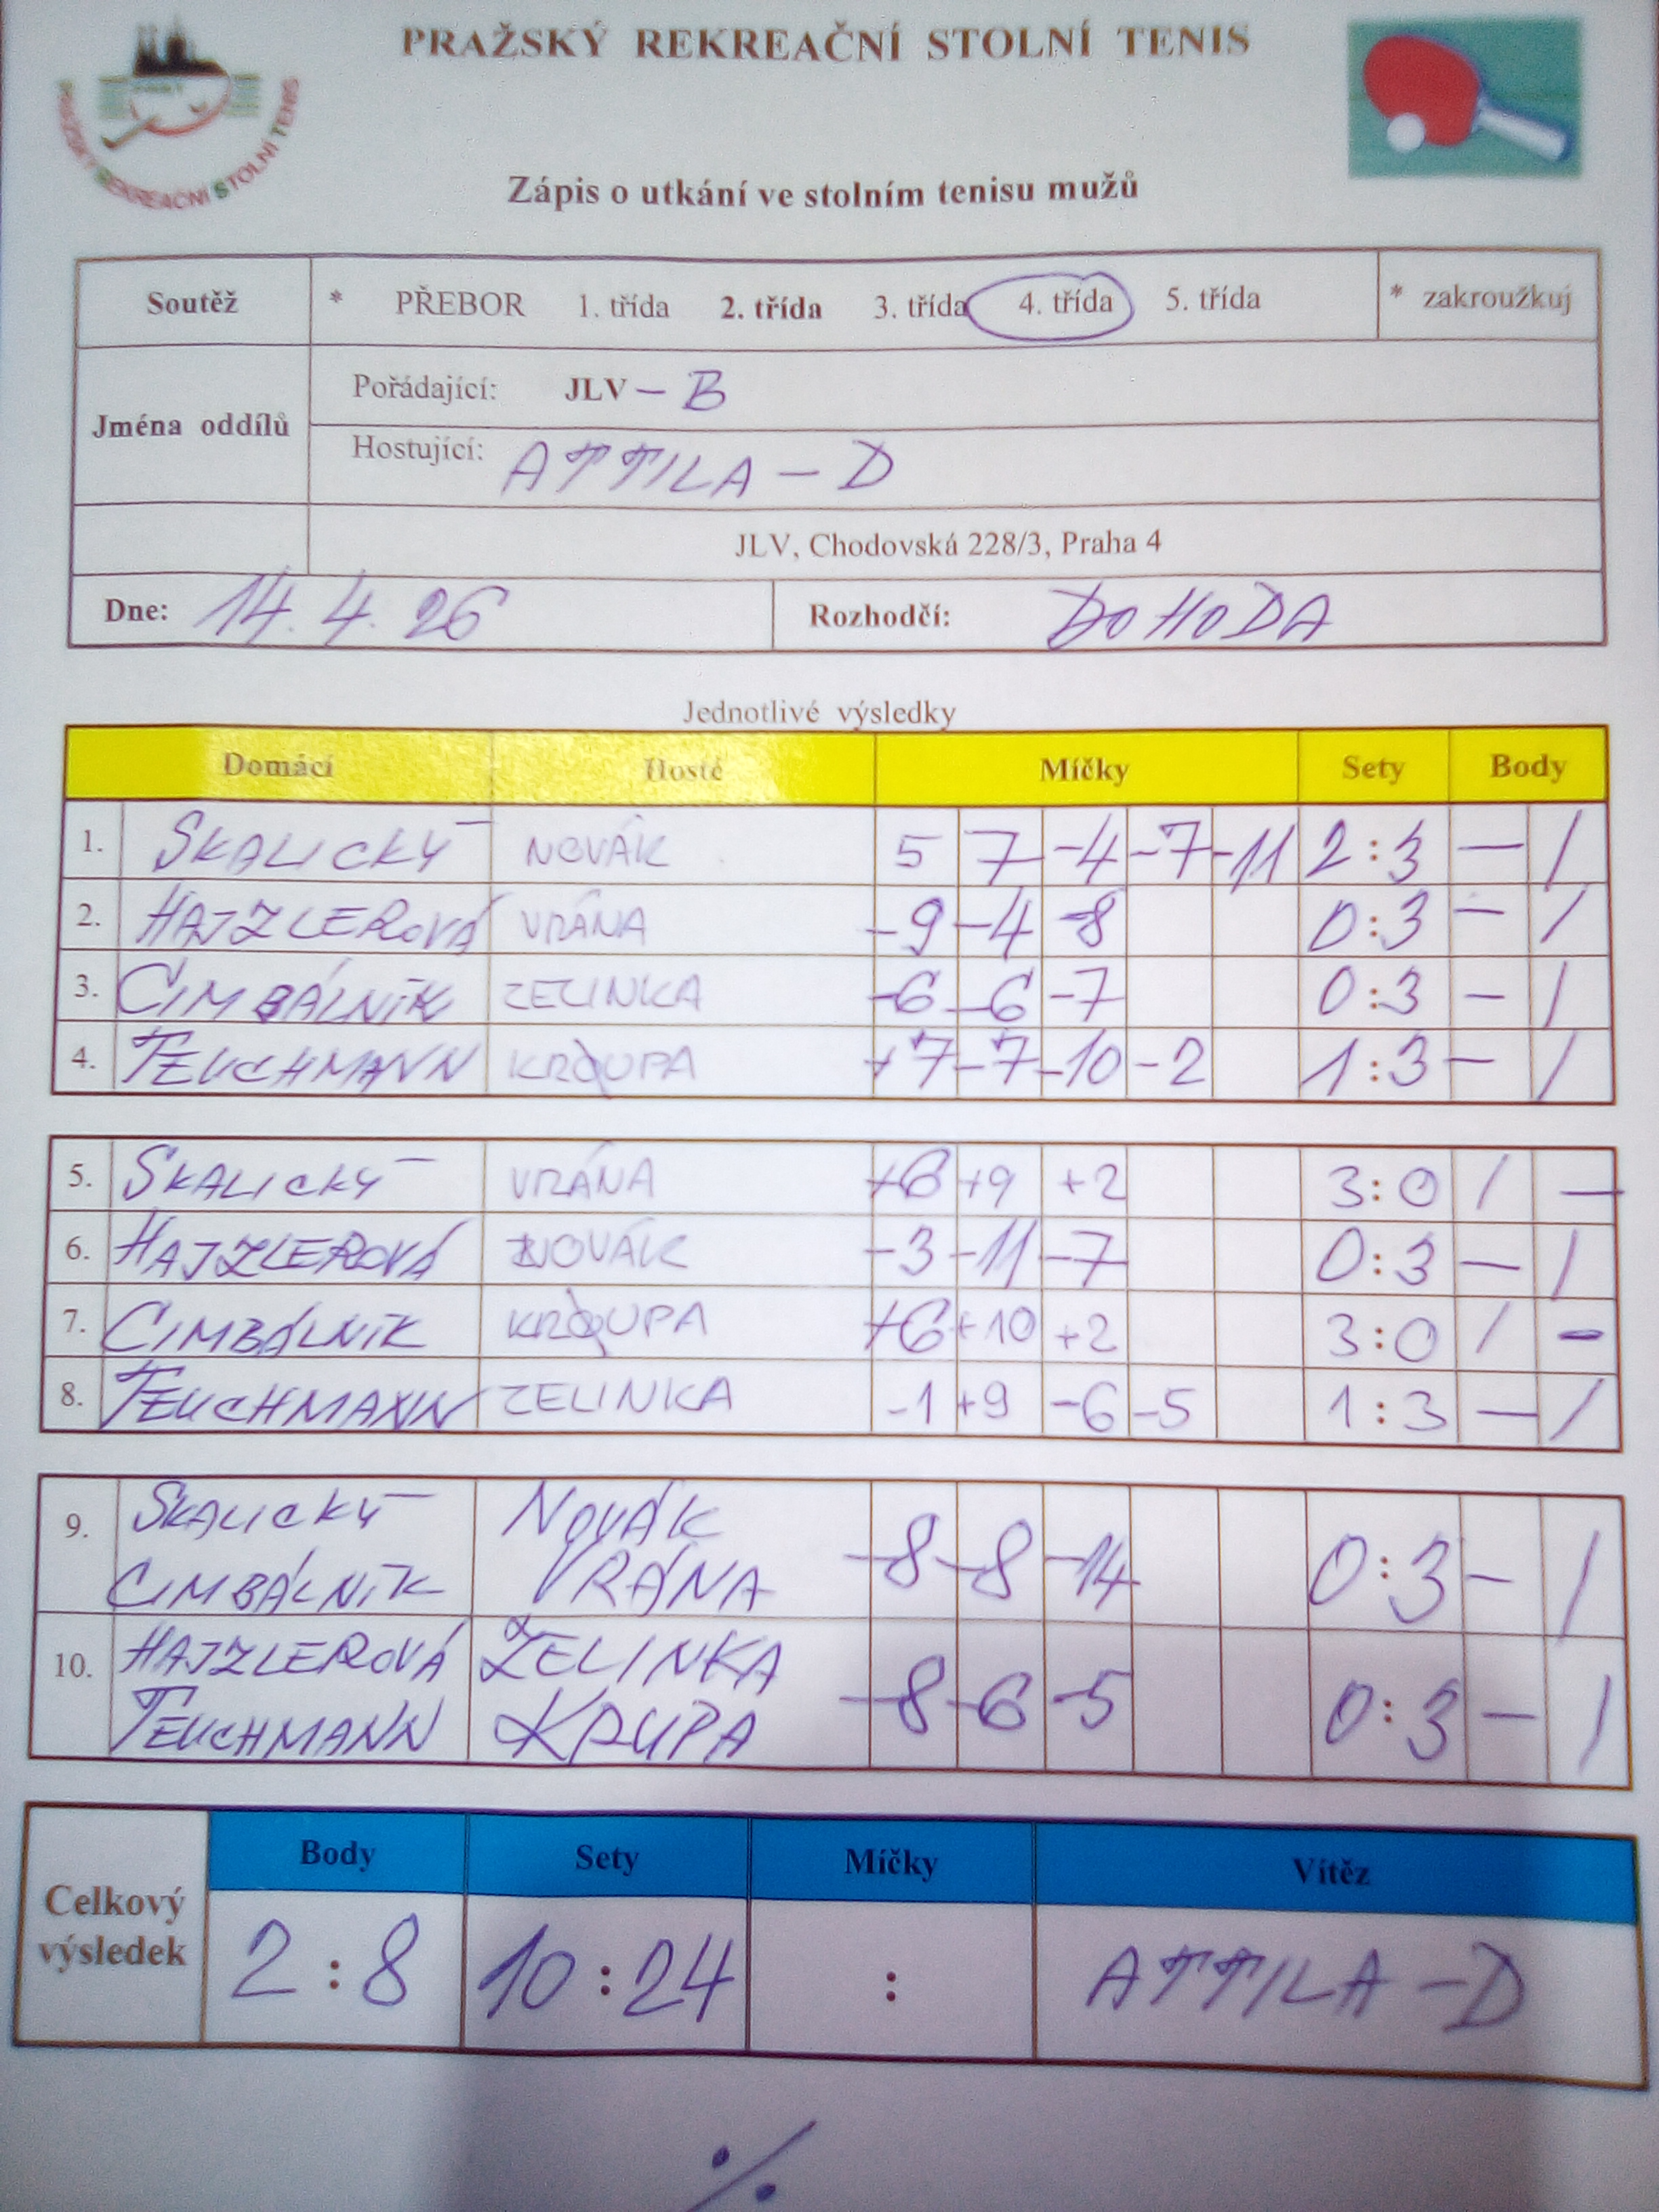 PRAŽSKÝ REKREAČNÍ STOLNÍ TENIS
PRAŽSKÝ REKREAČNÍ STOLNÍ TENIS
Zápis o utkání ve stolním tenisu mužů
Soutěž * PŘEBOR 1. třída 2. třída 3. třída 4. třída 5. třída * zakroužkuj
Jména oddílů
Pořádající: JLV – B
Hostující: ATTILA – D
JLV, Chodovská 228/3, Praha 4
Dne: 14. 4. 26 Rozhodčí: DOHODA
Jednotlivé výsledky
Domácí Hosté Míčky Sety Body
1. SKALICKÝ NOVÁK 5 7 -4 -7 -11 2:3 – 1
2. HAJZLEROVÁ VRÁNA -9 -4 -8 0:3 – 1
3. CIMBÁLNÍK ZELINKA -6 -6 -7 0:3 – 1
4. TEUCHMANN KROUPA +7 -7 -10 -2 1:3 – 1
5. SKALICKÝ VRÁNA +6 +9 +2 3:0 1 –
6. HAJZLEROVÁ NOVÁK -3 -11 -7 0:3 – 1
7. CIMBÁLNÍK KROUPA +6 +10 +2 3:0 1 –
8. TEUCHMANN ZELINKA -1 +9 -6 -5 1:3 – 1
9. SKALICKÝ NOVÁK
CIMBÁLNÍK VRÁNA -8 -8 -14 0:3 – 1
10. HAJZLEROVÁ ZELINKA
TEUCHMANN KRUPA -8 -6 -5 0:3 – 1
Celkový výsledek
Body Sety Míčky Vítěz
2:8 10:24 : ATTILA – D
%